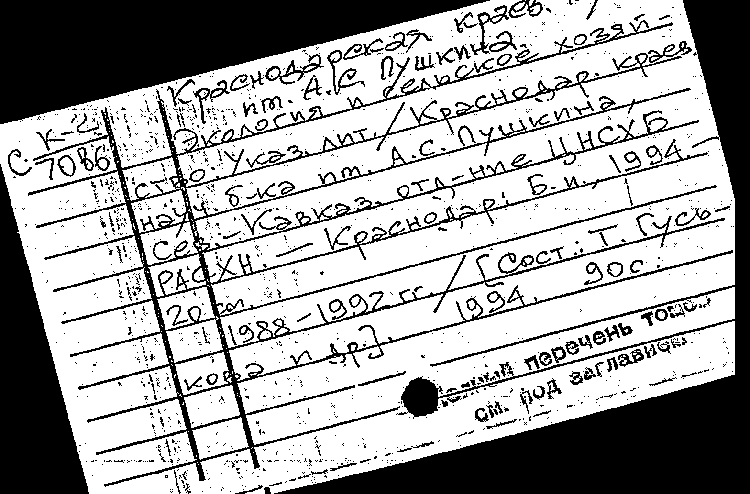 Краснодарская краев.
им. А.С. Пушкина
С К-2
7086
Экология и сельское хозяй-
ство. Указ. лит. / Краснодар. краев.
науч. б-ка им. А.С. Пушкина,
Сев.-Кавказ. отд-ние ЦНСХБ
РАСХН. — Краснодар: Б.и., 1994.—
20 см.
1988-1992 гг. / [Сост.: Т. Гусь-
кова и др.]. 1994. 90с.
перечень
см. под заглавием.